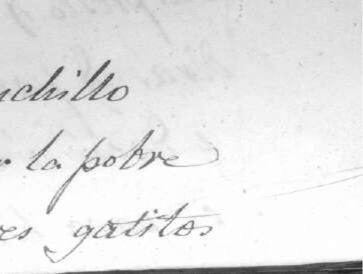 uchillo
r la pobre
res gatitos